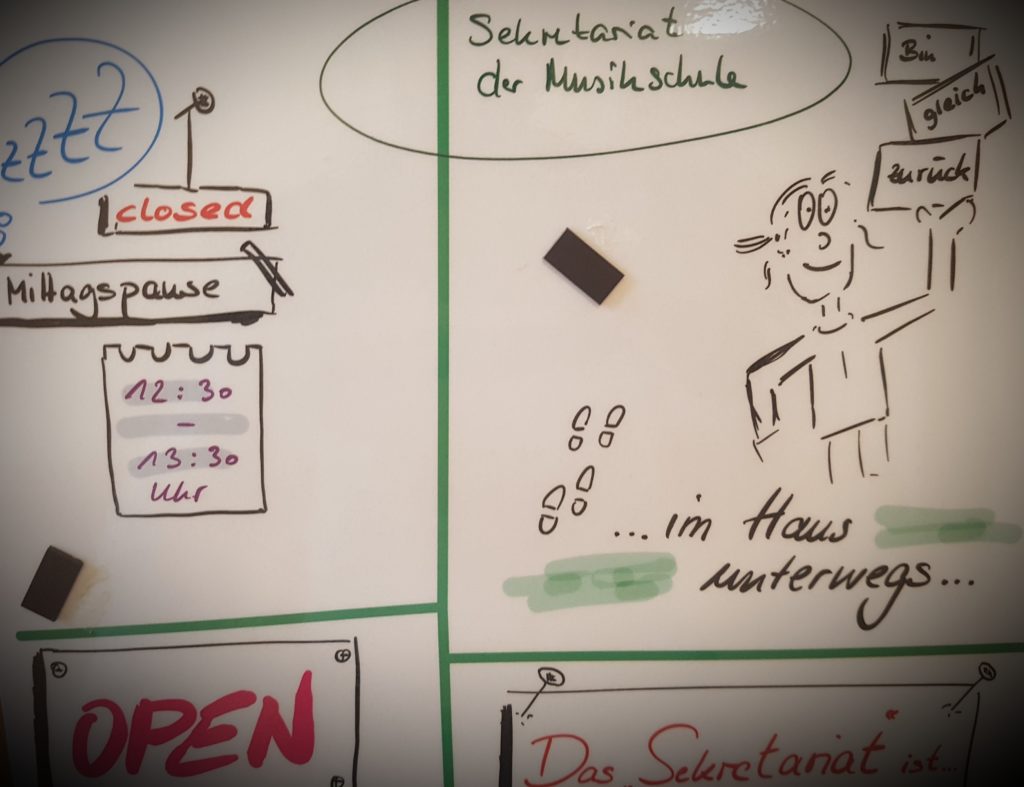 Sekretariat
der Musikschule
zzZZZ
closed
Mittagspause
12:30
-
13:30
Uhr
Bin
gleich
zurück
...im Haus
unterwegs...
OPEN
Das Sekretariat" ist...